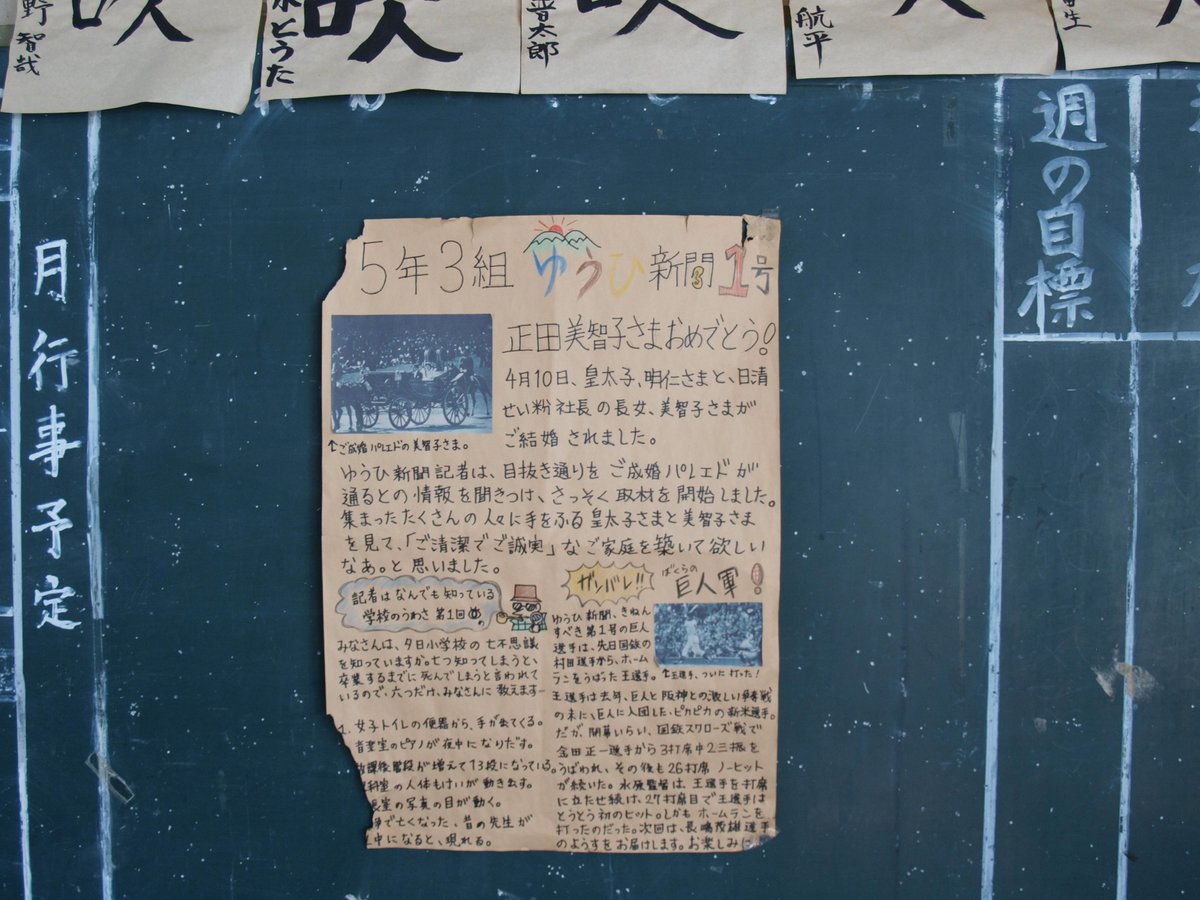 野 智哉
吹
とうた
吹
晋太郎
吹
航平
生
月行事予定
週の目標
5年3組 ゆうひ新聞 1号
正田美智子さまおめでとう!
4月10日、皇太子、明仁さまと、日清
せい粉社長の長女、美智子さまが
ご結婚されました。
↑ご成婚パレェドの美智子さま。
ゆうひ新聞記者は、目抜き通りをご成婚パレェドが
通るとの情報を聞きつけ、さっそく取材を開始しました。
集まったたくさんの人々に手をふる皇太子さまと美智子さま
を見て、「ご清潔でご誠実」なご家庭を築いて欲しい
なあ。と思いました。
記者はなんでも知っている
学校のうわさ 第1回
みなさんは、夕日小学校の七不思議
を知っていますか。七つ知ってしまうと、
卒業するまでに死んでしまうと言われて
いるので、六つだけ、みなさんに教えます
1. 女子トイレの便器から、手が出てくる。
音楽室のピアノが夜中になりだす。
放課後階段が増えて13段になっている。
科室の人体もけいが動き出す。
長室の写真の目が動く。
争で亡くなった、昔の先生が
中になると、現れる。
ガンバレ!!
ぼくらの
巨人軍
ゆうひ新聞、きねん
すべき第1号の巨人
選手は、先日国鉄の
村田選手から、ホーム
ランをうばった王選手。
↑王選手、ついに打った!
王選手は去年、巨人と阪神との激しい争奪戦
の末に、巨人に入団した、ピカピカの新米選手。
だが、開幕いらい、国鉄スワローズ戦で
金田正一選手から3打席中2三振を
うばわれ、その後も26打席ノーヒット
が続いた。水原監督は、王選手を打席
に立たせ続け、27打席目で王選手は
とうとう初のヒット。しかもホームランを
打ったのだった。次回は、長嶋茂雄選手
のようすをお届けします。お楽しみに